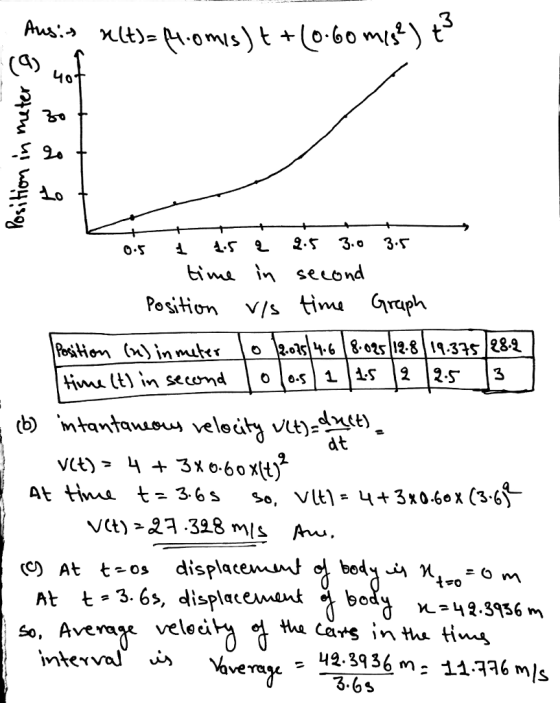 Ans:→ x(t)=(4.0m/s) t + (0.60 m/s²) t³
(a)
Position in meter
40
30
20
10
0.5 1 1.5 2 2.5 3.0 3.5
time in second
Position v/s time Graph
Position (x) in meter 0 2.075 4.6 8.025 12.8 19.375 28.2
time (t) in second 0 0.5 1 1.5 2 2.5 3
(b) intantaneous velocity v(t)=dx(t)/dt =
v(t) = 4 + 3x0.60x(t)²
At time t=3.6s so, v(t) = 4+3x0.60x (3.6)²
v(t) = 27.328 m/s Ans.
(c) At t=0s displacement of body is x t=0 = 0 m
At t=3.6s, displacement of body x=42.3936 m
so, Average velocity of the cars in the time
interval is Vaverage = 42.3936 m/3.6s = 11.776 m/s